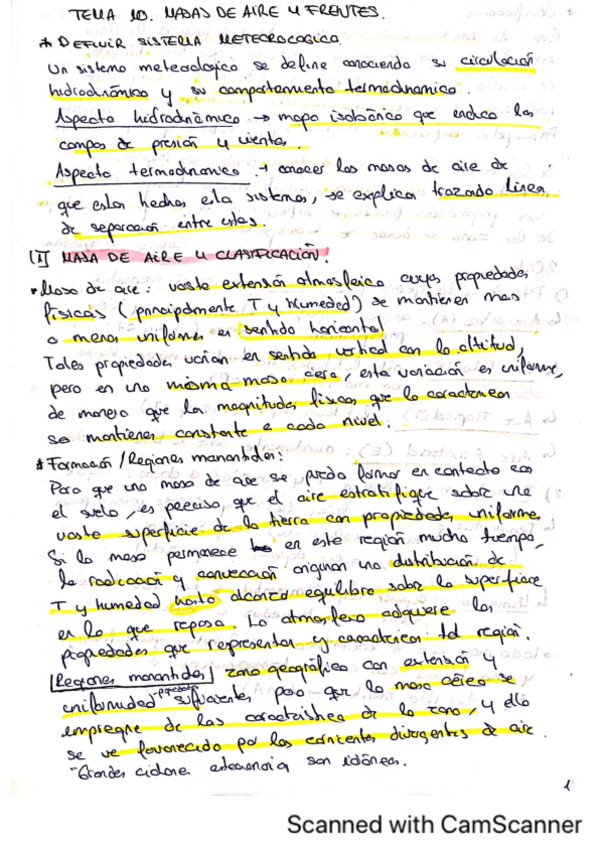 TEMA 10. MASAS DE AIRE Y FRENTES.
* DEFINIR SISTEMA METEOROLOGICO.
Un sistema meteorologico se define conociendo su circulación
hidrodinámica y su comportamiento termodinamico.
Aspecto hidrodinámico → mapa isobárico que indica los
campos de presión y vientos.
Aspecto termodinamico → conocer las masas de aire de
que estan hechos esta sistemas, se explica trazado línea
de separación entre estas.
(I) MASA DE AIRE Y CLASIFICACIÓN.
* Masa de aire: vasta extensión atmosférica cuyas propiedades
físicas (principalmente T y humedad) se mantienen mas
o menos uniformes en sentido horizontal
Tales propiedades varían en sentido vertical con la altitud,
pero en una misma masa aerea, esta variación es uniforme,
de manera que las magnitudes físicas que la caracterizan
se mantienen constante a cada nivel.
* Formación / Regiones manantiales:
Para que una masa de aire se pueda formar en contacto con
el suelo, es preciso, que el aire estratifique sobre una
vasta superficie de la tierra con propiedades uniforme.
Si la masa permanece en esta región mucho tiempo,
la radiación y convección originan una distribución de
T y humedad hasta alcanzar equilibrio sobre la superficie
en la que reposa. La atmosfera adquiere las
propiedades que representan y caracterizan tal región.
Regiones manantiales zona geográfica con extensión y
uniformidad suficientes, para que la masa aérea se
empregne de las caracteristicas de la zona, y ello
se ve favorecido por las corrientes divergentes de aire.
- Grandes ciclones son idóneas.
1
Scanned with CamScanner